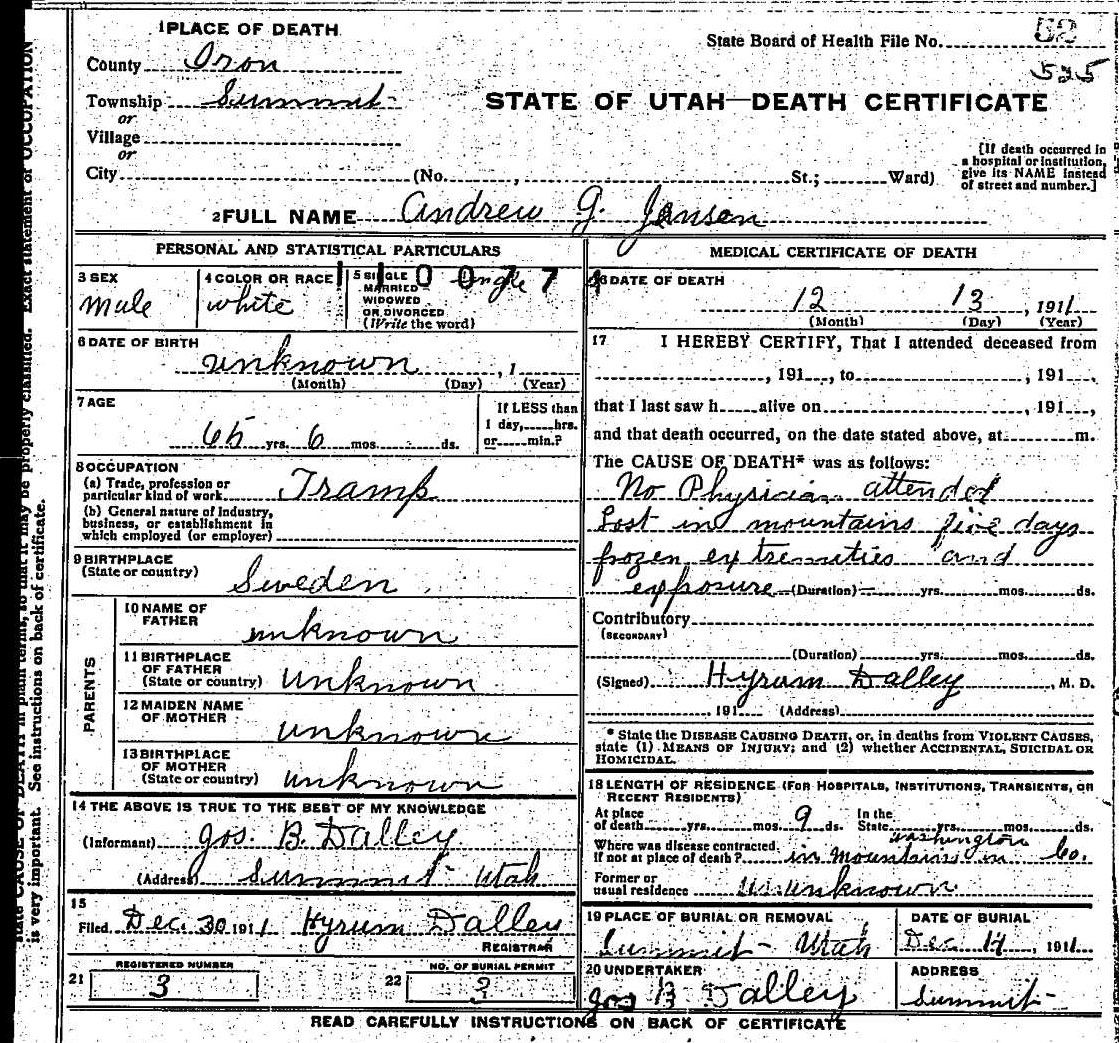 1 PLACE OF DEATH
County Iron
Township Summit
or
Village
or
City (No. , St.; Ward)
State Board of Health File No. 52
525
STATE OF UTAH—DEATH CERTIFICATE
[If death occurred in
a hospital or institution,
give its NAME instead
of street and number.]
2 FULL NAME Andrew G. Jensen
PERSONAL AND STATISTICAL PARTICULARS
3 SEX
Male
4 COLOR OR RACE
white
5 SINGLE
MARRIED
WIDOWED
OR DIVORCED
(Write the word)
Single
6 DATE OF BIRTH
unknown , 1
(Month) (Day) (Year)
7 AGE
65 yrs. 6 mos. ds.
If LESS than
1 day, hrs.
or min.?
8 OCCUPATION
(a) Trade, profession or
particular kind of work Tramp
(b) General nature of industry,
business, or establishment in
which employed (or employer)
9 BIRTHPLACE
(State or country) Sweden
PARENTS
10 NAME OF
FATHER unknown
11 BIRTHPLACE
OF FATHER
(State or country) unknown
12 MAIDEN NAME
OF MOTHER unknown
13 BIRTHPLACE
OF MOTHER
(State or country) unknown
14 THE ABOVE IS TRUE TO THE BEST OF MY KNOWLEDGE
(Informant) Jos. B. Dalley
(Address) Summit Utah
15
Filed Dec. 30 1911 Hyrum Dalley
REGISTRAR
21 REGISTERED NUMBER
3
22 NO. OF BURIAL PERMIT
3
MEDICAL CERTIFICATE OF DEATH
16 DATE OF DEATH
12 13 , 1911
(Month) (Day) (Year)
17 I HEREBY CERTIFY, That I attended deceased from
, 191 , to , 191 ,
that I last saw h alive on , 191 ,
and that death occurred, on the date stated above, at m.
The CAUSE OF DEATH* was as follows:
No Physician attended
Lost in mountains five days
frozen extremities and
exposure (Duration) yrs. mos. ds.
Contributory
(SECONDARY)
(Duration) yrs. mos. ds.
(Signed) Hyrum Dalley , M. D.
, 191 (Address)
* State the DISEASE CAUSING DEATH, or, in deaths from VIOLENT CAUSES,
state (1) MEANS OF INJURY; and (2) whether ACCIDENTAL, SUICIDAL OR
HOMICIDAL.
18 LENGTH OF RESIDENCE (FOR HOSPITALS, INSTITUTIONS, TRANSIENTS, OR
RECENT RESIDENTS)
At place
of death yrs. mos. 9 ds. In the
State yrs. mos. ds.
Where was disease contracted,
if not at place of death? in mountains in Washington Co.
Former or
usual residence unknown
19 PLACE OF BURIAL OR REMOVAL
Summit Utah
DATE OF BURIAL
Dec 14 , 1911
20 UNDERTAKER
Jos B Dalley
ADDRESS
Summit
READ CAREFULLY INSTRUCTIONS ON BACK OF CERTIFICATE
is very important. See instructions on back of certificate.